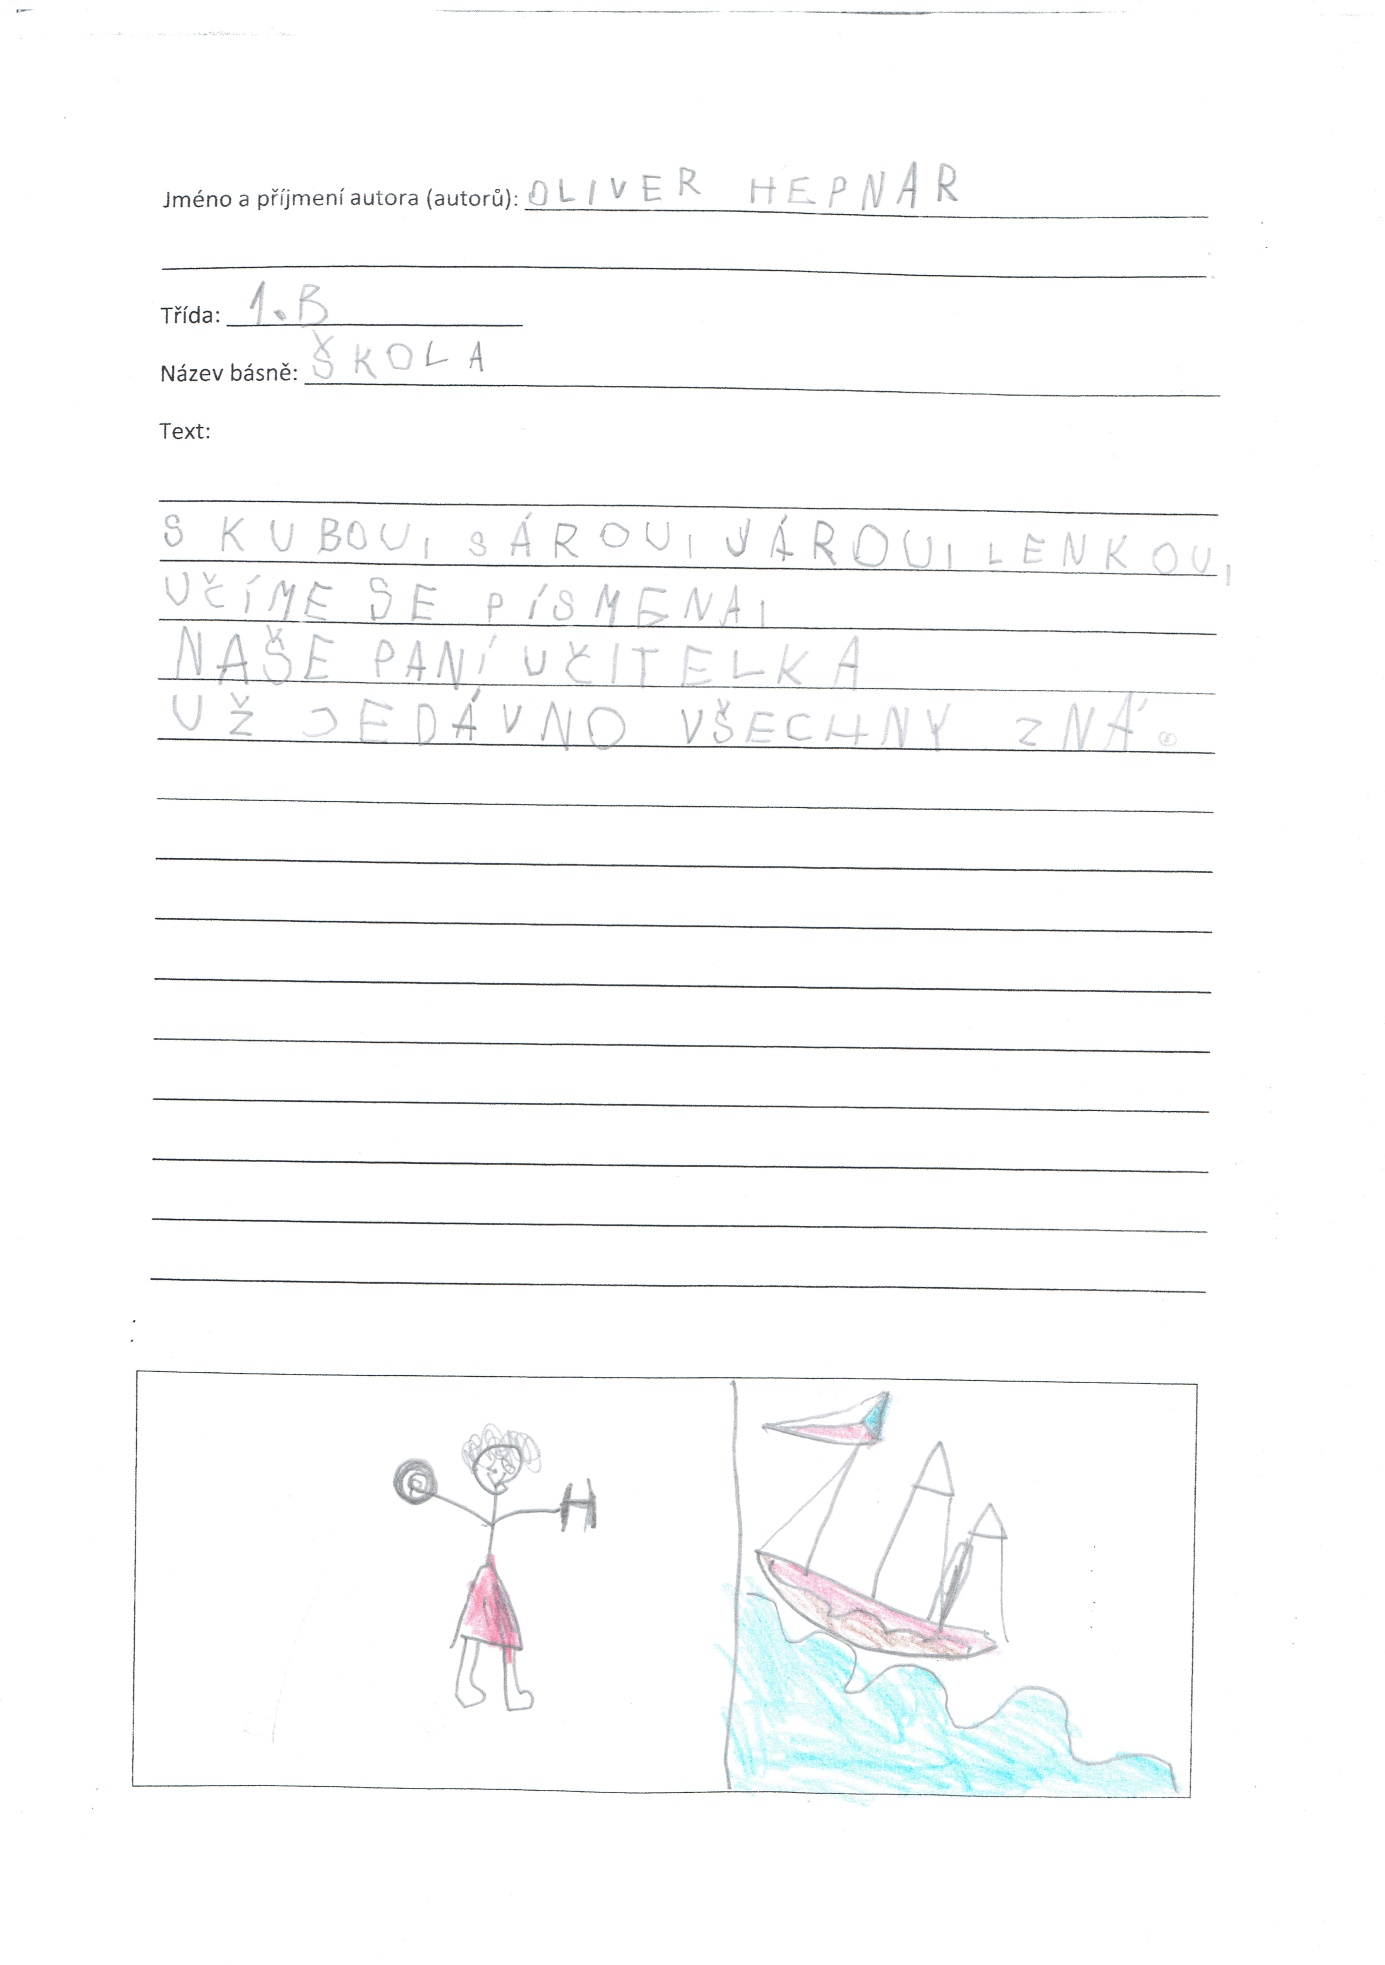 Jméno a příjmení autora (autorů): OLIVER HEPNAR
Třída: 1.B
Název básně: ŠKOLA
Text:
S KUBOU, SÁROU, JÁROU, LENKOU,
UČÍME SE PÍSMENA,
NAŠE PANÍ UČITELKA
UŽ JEDÁVNO VŠECHNY ZNÁ.
H